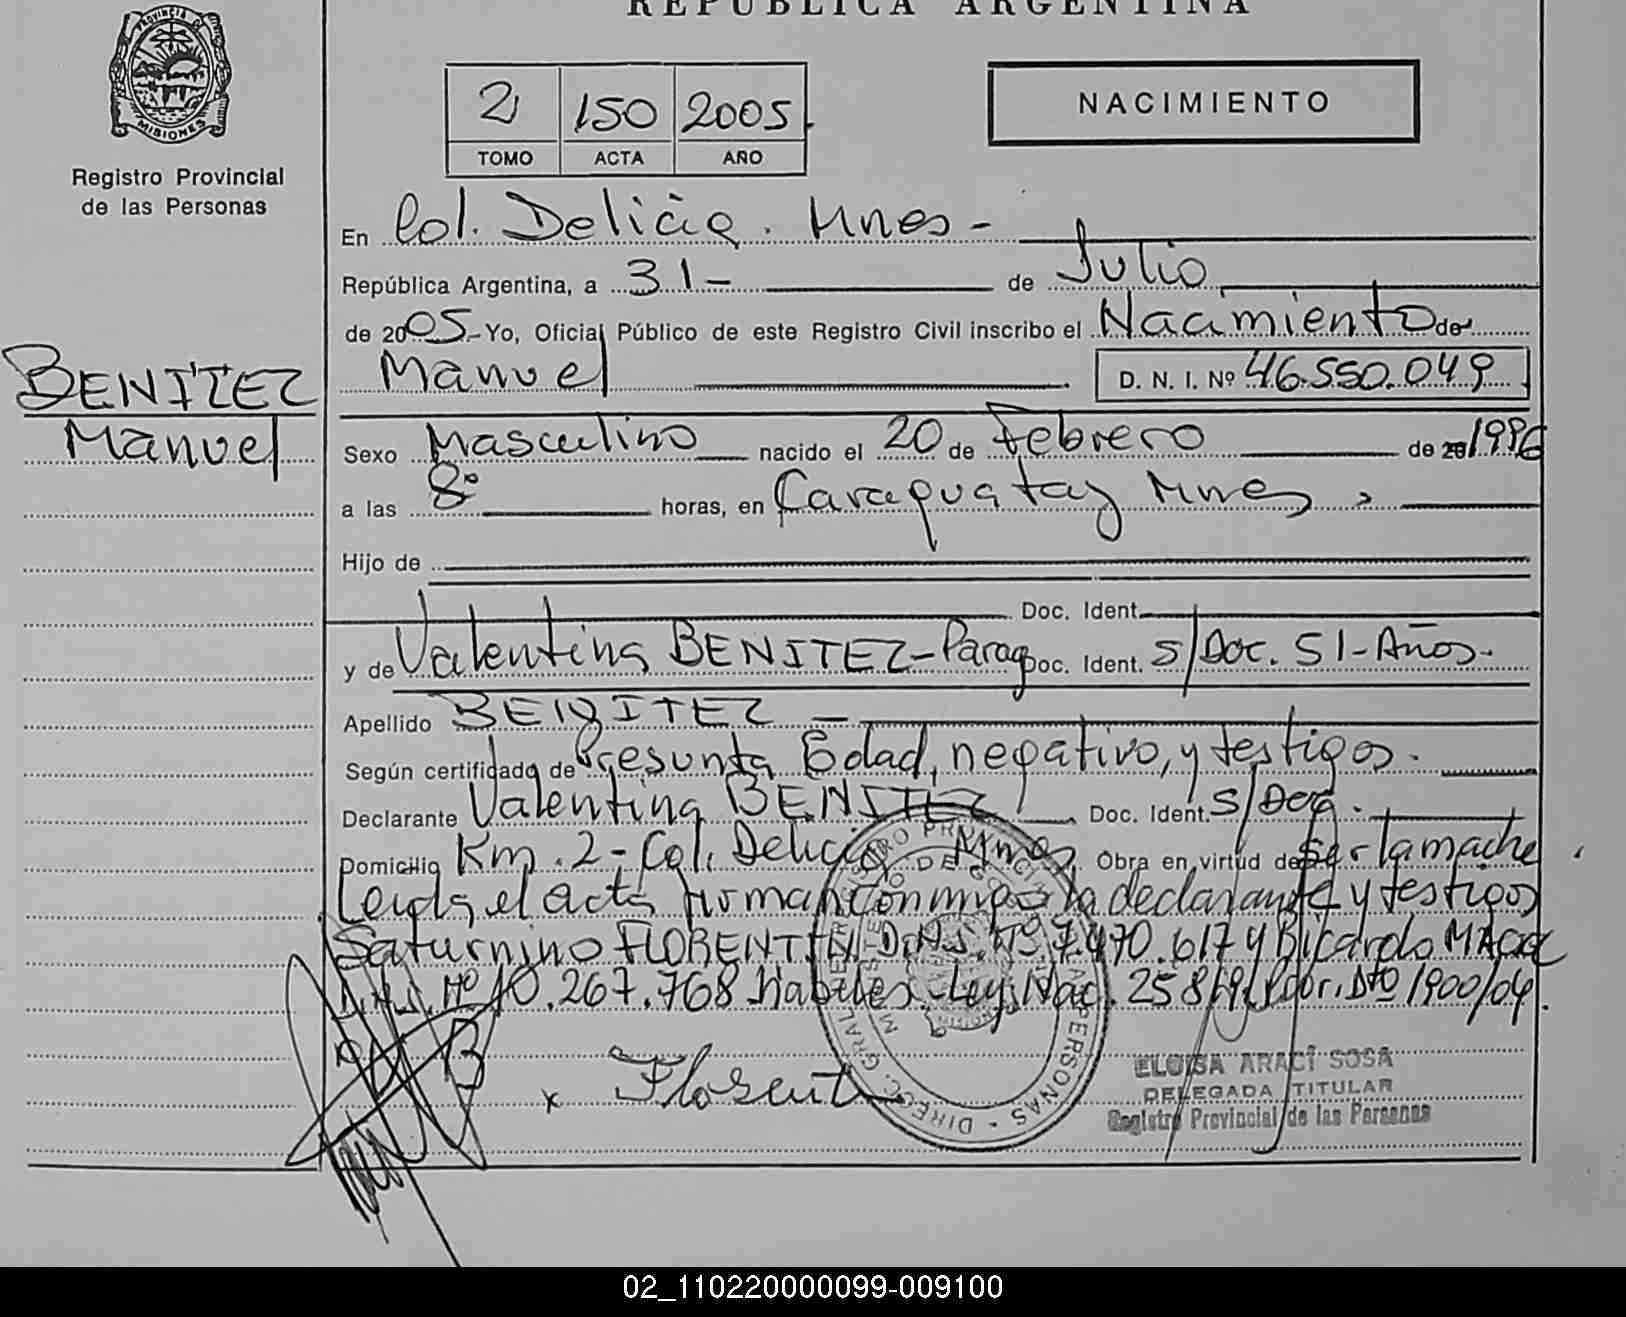 REPUBLICA ARGENTINA
MISIONES
Registro Provincial
de las Personas
2 150 2005
TOMO ACTA AÑO
NACIMIENTO
En Col. Delicia. Mnes-
República Argentina, a 31- de Julio
de 2005- Yo, Oficial Público de este Registro Civil inscribo el Nacimiento de
Manuel D. N. I. Nº 46.550.049
BENITEZ
Manuel
Sexo Masculino nacido el 20 de Febrero de 20 1996
a las 8º horas, en Caraguatay Mnes,
Hijo de
Doc. Ident.
y de Valentina BENITEZ-Parag Doc. Ident. S/Doc. 51-Años.
Apellido BENITEZ -
Según certificado de Presunta Edad, negativo, y testigos.
Declarante Valentina BENITEZ Doc. Ident. S/Doc.
Domicilio Km. 2- Col. Delicia Mnes. Obra en virtud de Ser la madre
Leida el acta firman conmigo la declarante y testigos
Saturnino FLORENTIN D.N.I. Nº 7.470.617 y Ricardo
D.N.I. Nº 10.267.768 habiles-Ley Nac. 25.819 y Dto 1900/04.
B
x Florenti
ELOISA ARACÍ SOSA
DELEGADA TITULAR
Registro Provincial de las Personas
02_110220000099-009100